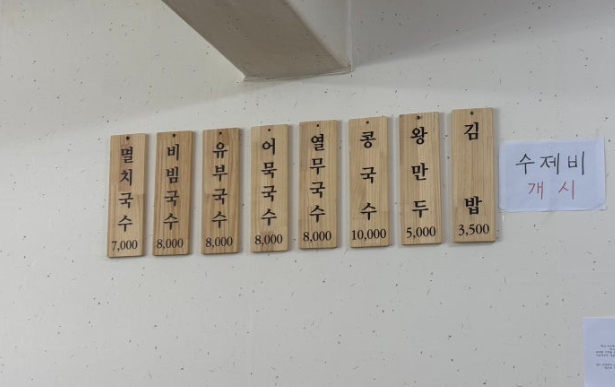 멸치국수
7,000
비빔국수
8,000
유부국수
8,000
어묵국수
8,000
열무국수
8,000
콩국수
10,000
왕만두
5,000
김밥
3,500
수제비
개시